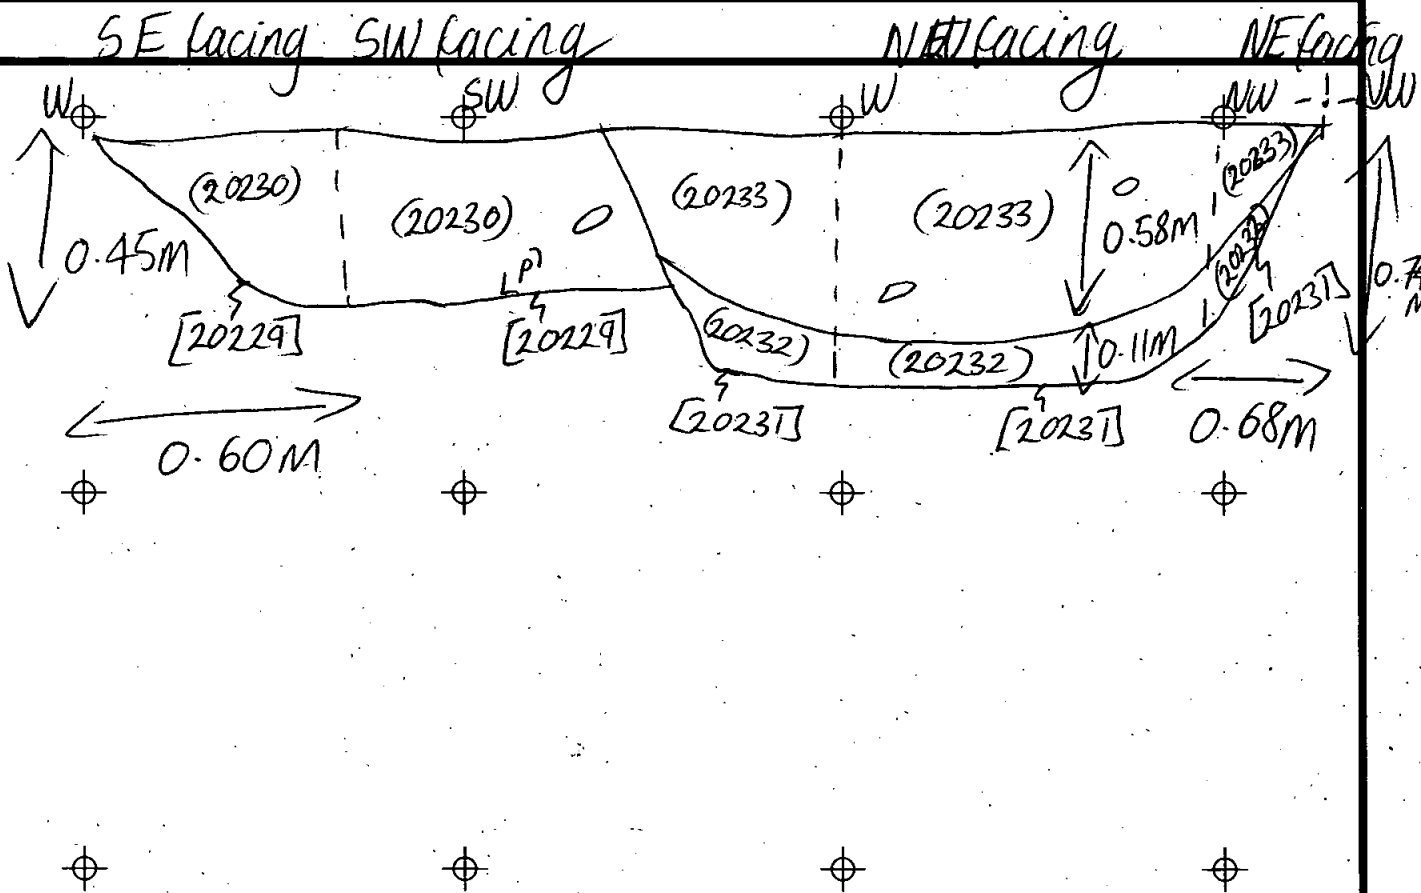 SE facing SW facing NW facing NE facing
W SW W NW NW
(20230) (20230) (20233) (20233) (20233)
0.45M 0.58M
[20229] [20229] (20232) (20232) 0.11M [20231]
[20231] [20231] 0.68M
0.60M